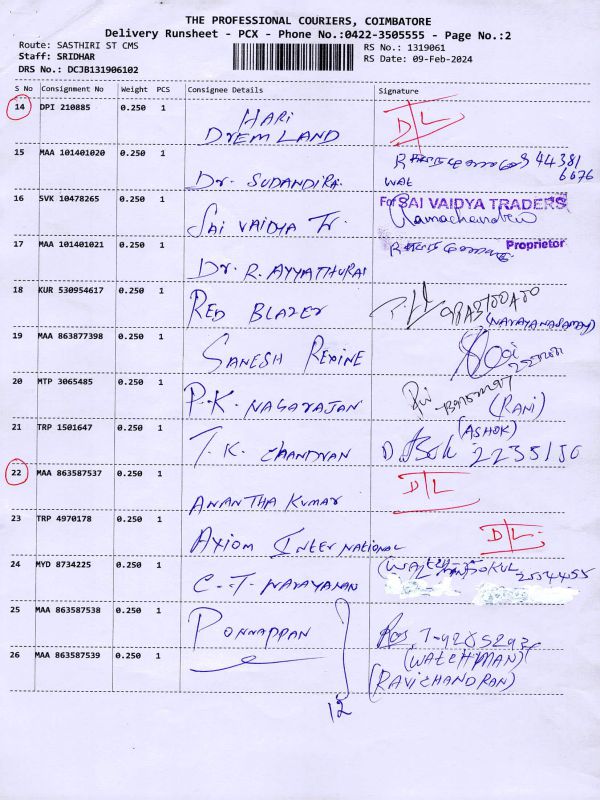 THE PROFESSIONAL COURIERS, COIMBATORE
Delivery Runsheet - PCX - Phone No.:0422-3505555 - Page No.:2
Route: SASTHIRI ST CMS RS No.: 1319061
Staff: SRIDHAR RS Date: 09-Feb-2024
DRS No.: DCJB131906102
S No Consignment No Weight PCS Consignee Details Signature
14 DPI 210885 0.250 1 HARI D/L
DREM LAND
15 MAA 101401020 0.250 1 44381
6676
Dr. SUDANDIRA.
16 SVK 10478265 0.250 1 For SAI VAIDYA TRADERS
SAI VAIDYA Tr. Ramachandren
17 MAA 101401021 0.250 1 Proprietor
Dr. R. AYYATHURAI
18 KUR 530954617 0.250 1
RED BLAZER (NARAYANASAMY)
19 MAA 863877398 0.250 1
GANESH REXINE
20 MTP 3065485 0.250 1
P.K. NAGARAJAN (RANI)
21 TRP 1501647 0.250 1 (ASHOK)
T.K. CHANDRAN
22 MAA 863587537 0.250 1 D/L
ANANTHA KUMAR
23 TRP 4970178 0.250 1
AXIOM INTERNATIONAL D/L
24 MYD 8734225 0.250 1
C.T. NARAYANAN
25 MAA 863587538 0.250 1
PONNAPPAN
26 MAA 863587539 0.250 1 (WATCHMAN)
(RAVICHANDRAN)
12